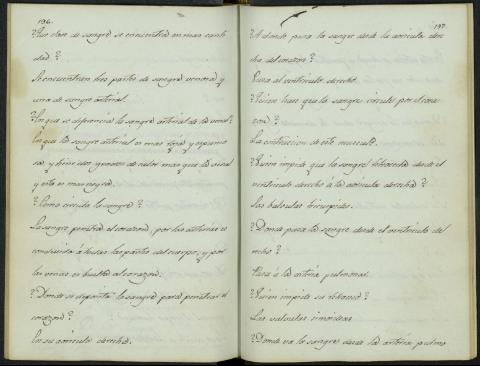 196.
?Que clase de sangre se encuentra en mas canti
dad?
Se encuentran tres partes de sangre venosa y
una de sangre arterial.
?En que se diferencia la sangre arterial de la venal?
En que la sangre arterial es mas roja y espumo
sa, y tiene dos grados de calor mas que la venal
y esta es mas negra.
?Como circula la sangre?
La sangre penetra el corazon, por las arterias es
conducida á todas las partes del cuerpo, y por
las venas es vuelta al corazon.
?Donde se deposita la sangre para penetrar el
corazon?
En su auricula derecha.
197.
?A donde pasa la sangre desde la auricula dere
cha del corazon?
Pasa al ventriculo derecho.
?Quien hace que la sangre circule por el cora
zon?
La contraccion de este musculo.
?Quien impide que la sangre retroceda desde el
ventriculo derecho á la auricula derecha?
Las balbulas tricuspides.
?Donde pasa la sangre desde el ventriculo de
recho?
Pasa á la arteria pulmonar.
?Quien impide su retroceso?
Las valvulas simoideas.
?Donde va la sangre desde la arteria pulmo